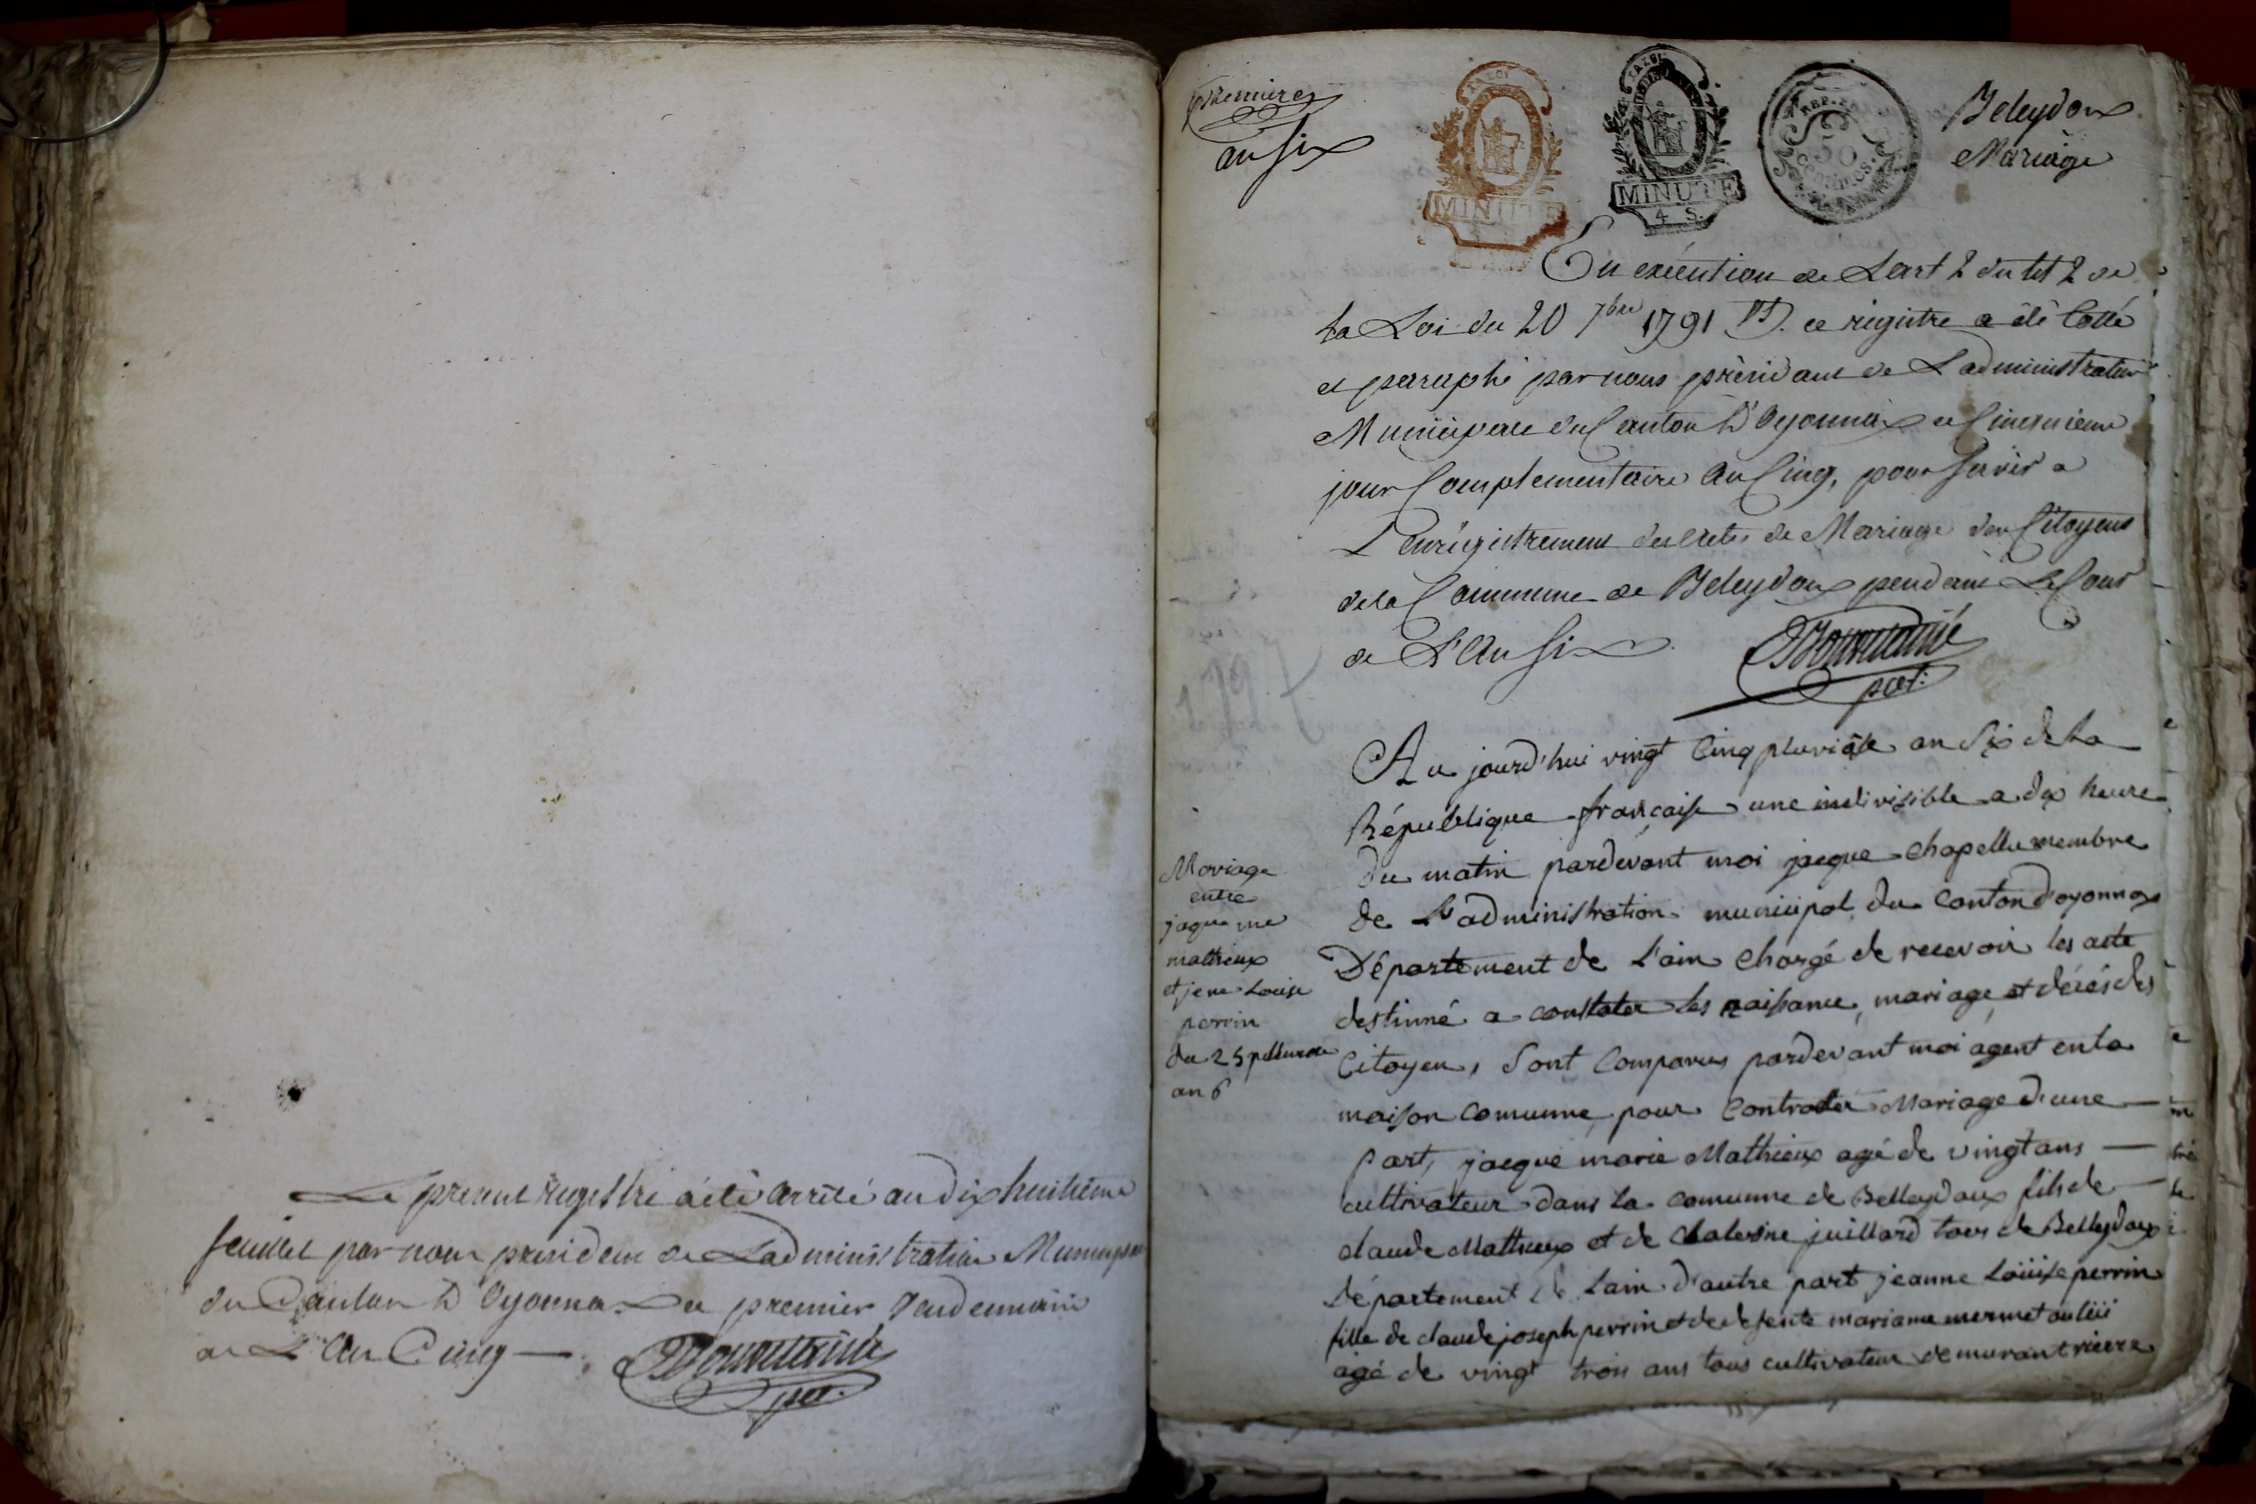 Le present regestre a été arrêté au dix huitième
feuillet par nous president de L'administration Municipale
du Canton D'Oyonna Le premier vendemiaire
de L'An Cinq
per.
premiere
an Six
MINUTE
MINUTE
4 S.
REP. FRA
50
Centimes
Beleydoux
Mariage
En exécution de L'art 2 du tit 2 de
la Loi du 20 7bre 1791 ce registre a été Cotté
et paraphé par nous président de L'administration
Municipale du Canton D'Oyonnax ce Cinquieme
jour Complementaire An Cinq, pour servir a
L'enrégistrement des actes de Mariage des Citoyens
de la Commune de Beleydoux pendant Le Cour
de L'An Six
1797
Au jourd'hui vingt Cinq pluviôse an Six de la
République française une indivisible a dix heure
du matin pardevant moi jacque chapellu membre
de L'administration municipal du Canton d'oyonnax
Département de L'ain chargé de recevoir les acte
destinné a constater les naissance, mariage, et décès des
Citoyens, Sont Comparus pardevant moi agent en la
maison comunne pour Contracter Mariage d'une
part, jacque marie Mathieux agé de vingt ans
cultivateur dans la comunne de Belleydoux fils de
claude Mathieux et de juillard tous de Belleydoux
Département de Lain d'autre part jeanne Loüise perrin
fille de claude joseph perrin et de defente mariame mermet
agé de vingt trois ans tous cultivateur demurant riere
Mariage
entre
jaque me
mathieux
et jene Louise
perrin
du 25
an 6